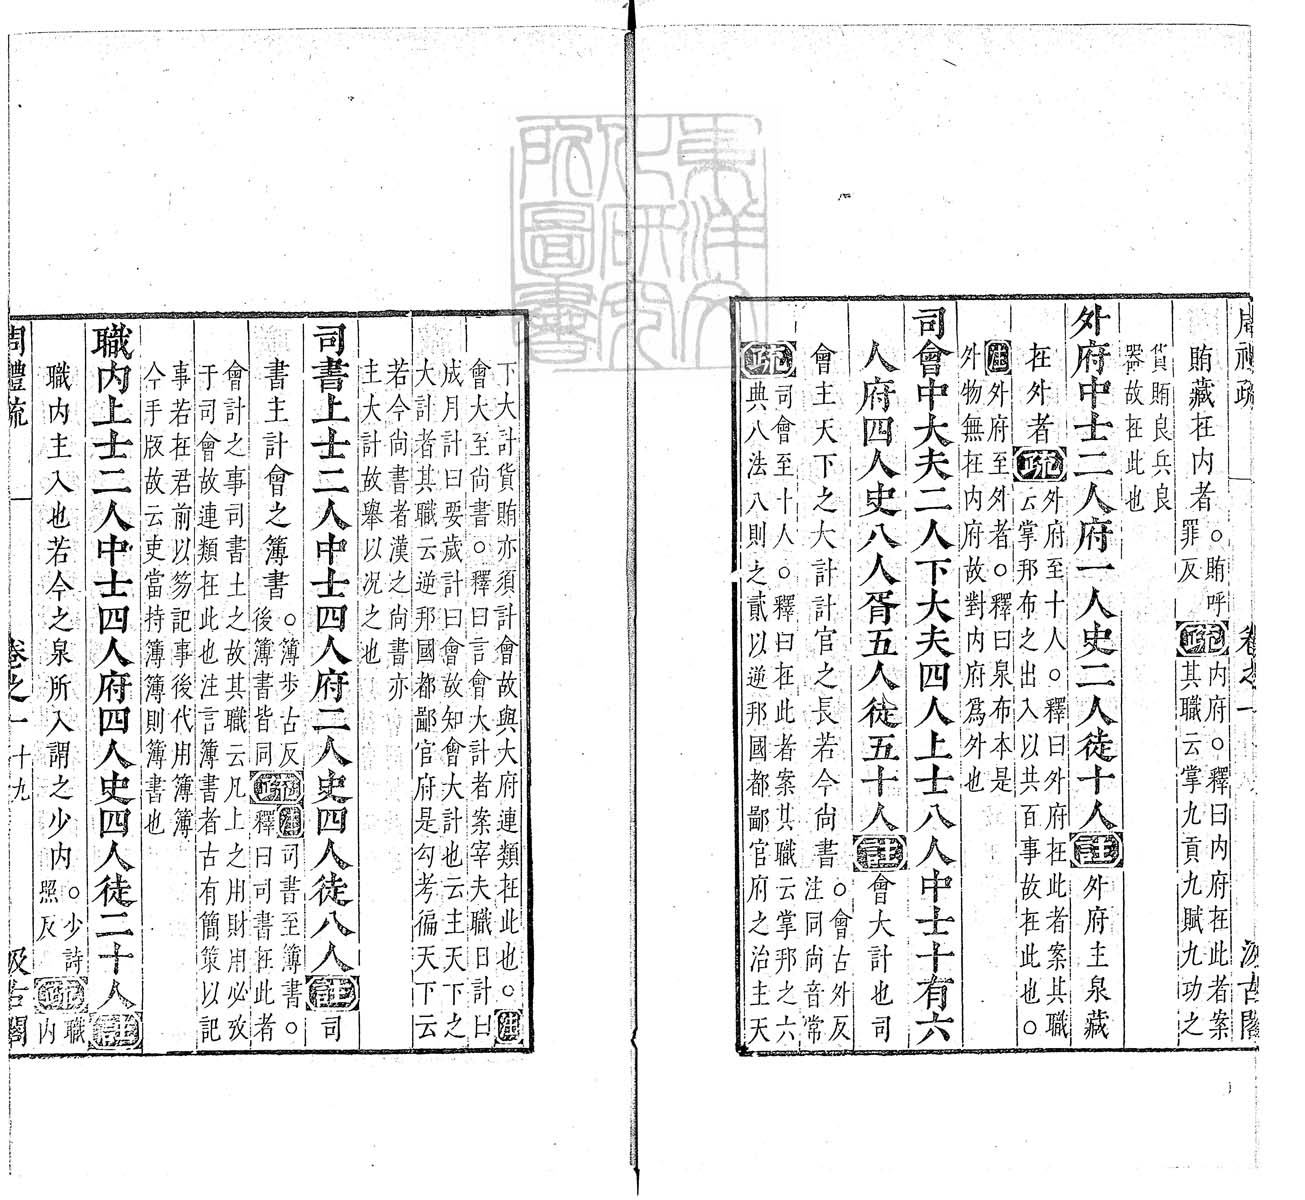 周禮疏
卷之一
汲古閣
賄藏在内者
○賄呼
罪反
疏
内府○釋曰内府在此者案
其職云掌九貢九賦九功之
貨賄良兵良
器故在此也
外府中士二人府一人史二人徒十人註外府主泉藏
在外者
疏
外府至十人○釋曰外府在此者案其職
云掌邦布之出入以共百事故在此也○
注外府至外者○釋曰泉布本是
外物無在内府故對内府爲外也
司會中大夫二人下大夫四人上士八人中士十有六
人府四人史八人胥五人徒五十人註會大計也司
會主天下之大計計官之長若今尙書
○會古外反
注同尙音常
疏
司會至十人○釋曰在此者案其職云掌邦之六
典八法八則之貳以逆邦國都鄙官府之治主天
下大計貨賄亦須計會故與大府連類在此也○注
會大至尙書○釋曰言會大計者案宰夫職日計曰
成月計曰要歲計曰會故知會大計也云主天下之
大計者其職云逆邦國都鄙官府是勾考徧天下云
若今尙書者漢之尙書亦
主大計故舉以况之也
司書上士二人中士四人府二人史四人徒八人註司
書主計會之簿書
○簿步古反
後簿書皆同
疏
注司書至簿書○
釋曰司書在此者
會計之事司書土之故其職云凡上之用財用必攷
于司會故連類在此也注言簿書者古有簡策以記
事若在君前以笏記事後代用簿簿
今手版故云吏當持簿簿則簿書也
職内上士二人中士四人府四人史四人徒二十人註
職内主入也若今之泉所入謂之少内
○少詩
照反
疏
職
内
周禮疏
卷之一
十九
汲古閣